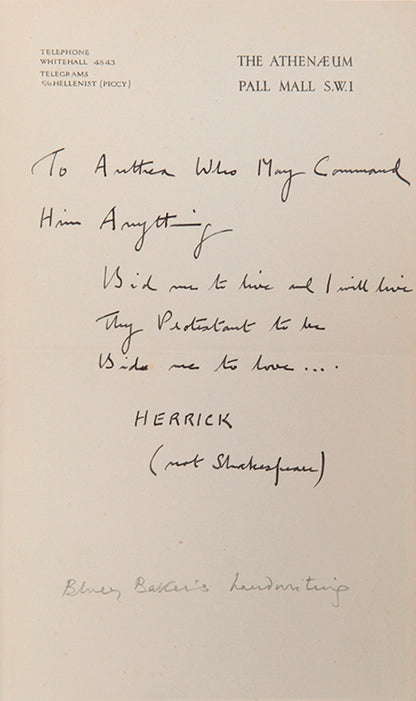 TELEPHONE
WHITEHALL 4843
TELEGRAMS
C/O HELLENIST (PICCY)
THE ATHENÆUM
PALL MALL S.W.1
To Anthea Who May Command
Him Anything
Bid me to live and I will live
Thy Protestant to be
Bid me to love ....
HERRICK
(not Shakespeare)
Baker's handwriting